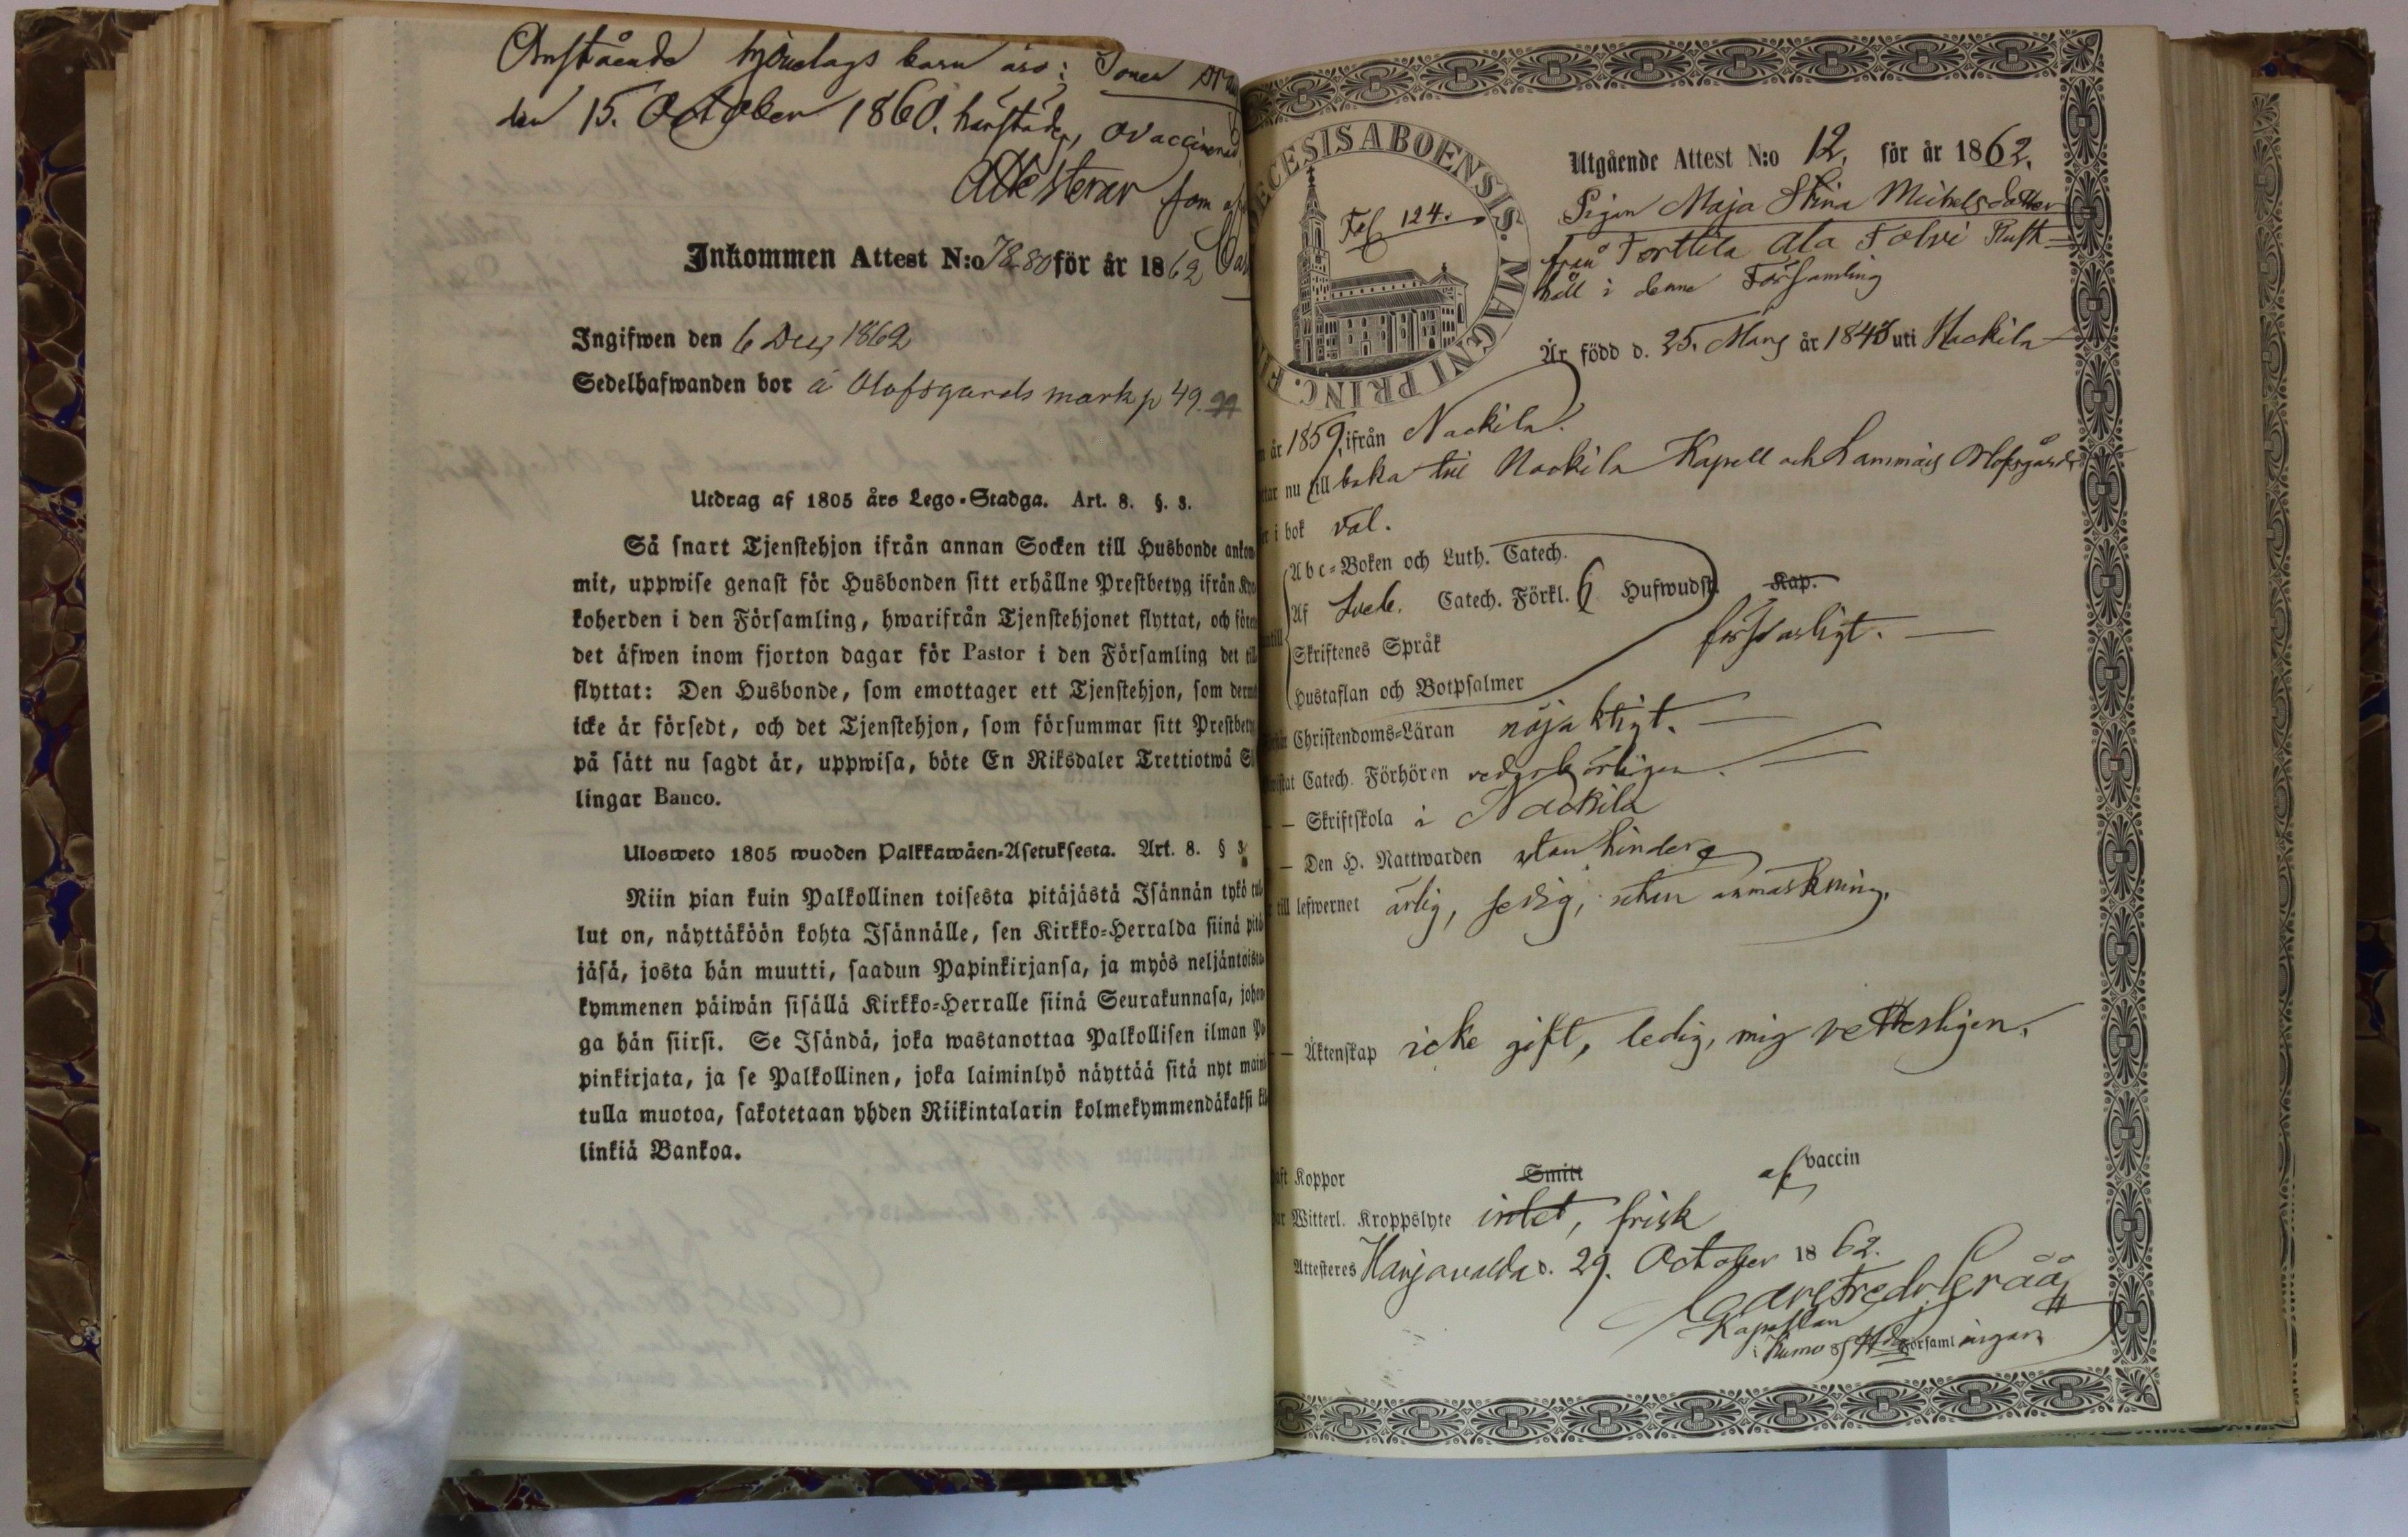 Omstående hjonelags barn äro: Jonas
den 15. October 1860. härstädes, ovaccinerad
Attesterar som
Inkommen Attest N:o 78-80 för år 1862
Ingifwen den 6 Dec 1862
Sedelhafwanden bor å Olofsgårds mark p 49.
Utdrag af 1805 års Lego-Stadga. Art. 8. §. 3.
Så snart Tjenstehjon ifrån annan Socken till Husbonde ankom
mit, uppwise genast för Husbonden sitt erhållne Prestbetyg ifrån Kyr
koherden i den Församling, hwarifrån Tjenstehjonet flyttat, och före
det äfwen inom fjorton dagar för Pastor i den Församling det till
flyttat: Den Husbonde, som emottager ett Tjenstehjon, som derme
icke är försedt, och det Tjenstehjon, som försummar sitt Prestbety
på sätt nu sagdt är, uppwisa, böte En Riksdaler Trettiotwå S
lingar Banco.
Ulosweto 1805 wuoden Palkkawäen-Asetuksesta. Art. 8. § 3.
Niin pian kuin Palkollinen toisesta pitäjästä Isännän tykö tul
lut on, näyttäköön kohta Isännälle, sen Kirkko-Herralda siinä pitä
jäsä, josta hän muutti, saadun Papinkirjansa, ja myös neljäntoista
kymmenen päiwän sisällä Kirkko-Herralle siinä Seurakunnasa, johon
ga hän siirsi. Se Isändä, joka wastanottaa Palkollisen ilman Pa
pinkirjata, ja se Palkollinen, joka laiminlyö näyttää sitä nyt maini
tulla muotoa, sakotetaan yhden Riikintalarin kolmekymmendäkaksi kil
linkiä Bankoa.
ECESIS ABOENSIS. MAGNI PRINC. FI
Fol 124.
Utgående Attest N:o 12. för år 1862.
Pigan Maja Stina Michelsdotter
från Torttila Ala Tolvi Rust-
håll i denna Församling
Är född d. 25. Mars år 1843 uti Nackila
år 1859, ifrån Nackila.
tar nu tillbaka till Nackila Kapell och Lammais Olofsgård
r i bok väl.
Abc-Boken och Luth. Catech.
Af Sveb. Catech. Förkl. 6 Hufwudst. Kap.
försvarligt.
Skriftenes Språk
Hustaflan och Botpsalmer
Christendoms-Läran nöjaktigt.
istat Catech. Förhören vederbörligen.
— Skriftskola i Nackila
— Den H. Nattwarden utan hinder
till lefwernet ärlig, sedig, utan anmärkning.
— Äktenskap icke gift, ledig, mig vetterligen.
aft Koppor Smitt af vaccin
ar Witterl. Kroppslyte intet, frisk
Attesteras Harjavalda d. 29. October 1862.
Carl Fredr. Gråå
Kapellan
i Kumo og Hda Församlingar.